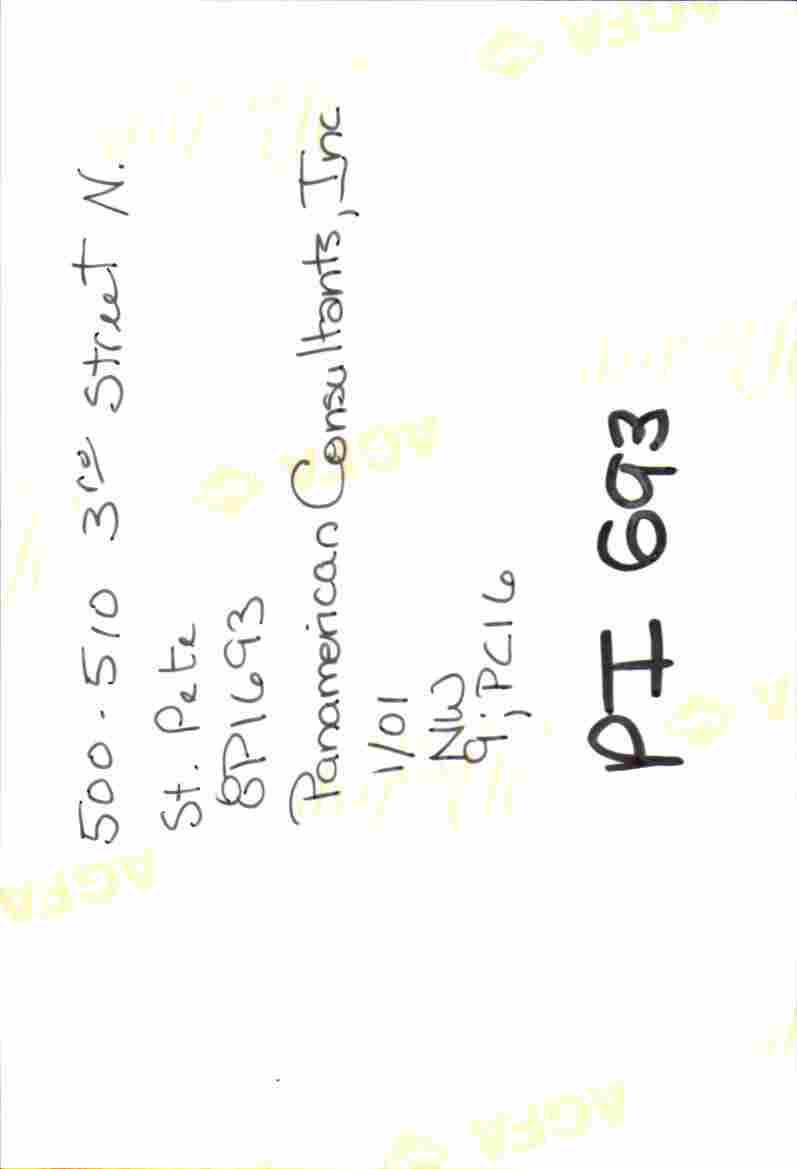 500-510 3rd Street N.
St. Pete
8PI693
Panamerican Consultants, Inc
1/01
NW
9; PC16
PI 693
AGFA
AGFA
AGFA
AGFA